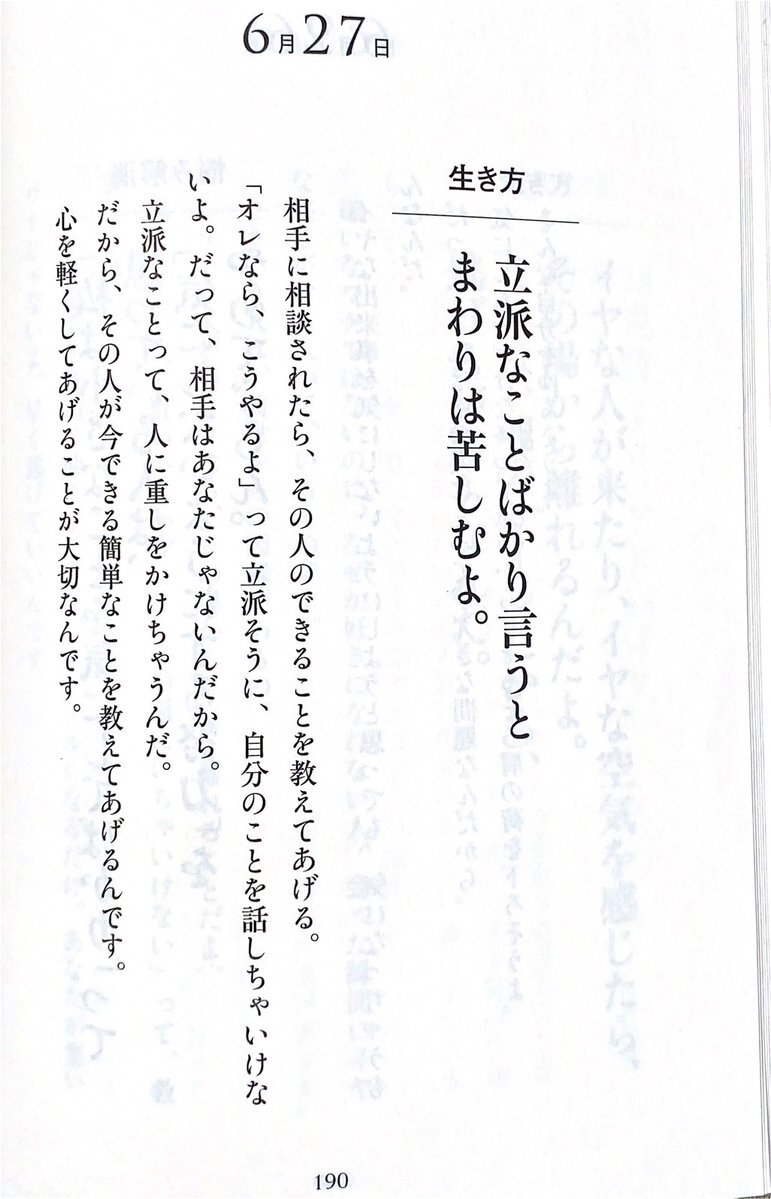 6月27日
生き方
立派なことばかり言うと
まわりは苦しむよ。
相手に相談されたら、その人のできることを教えてあげる。
「オレなら、こうやるよ」って立派そうに、自分のことを話しちゃいけな
いよ。だって、相手はあなたじゃないんだから。
立派なことって、人に重しをかけちゃうんだ。
だから、その人が今できる簡単なことを教えてあげるんです。
心を軽くしてあげることが大切なんです。
190